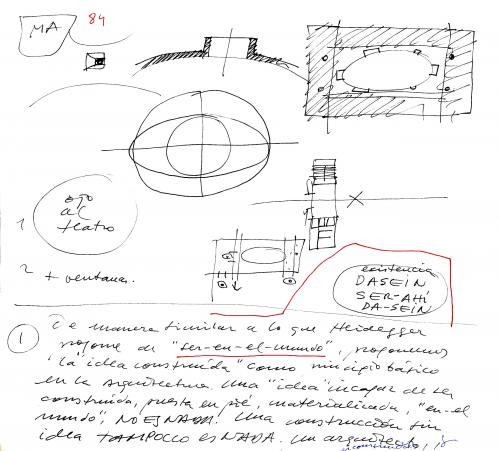 MA
84
ojo
al
teatro
1
2 + ventanas.
existencia
DASEIN
SER-AHÍ
DA-SEIN
1 De manera similar a lo que Heidegger
propone en "ser-en-el-mundo", proponemos
la "idea construida" como principio básico
en la arquitectura. Una "idea" incapaz de ser
construida, puesta en pié, materializada, "en-el
mundo", NO ES NADA. Una construcción sin
idea TAMPOCO es NADA. Un arquitecto,